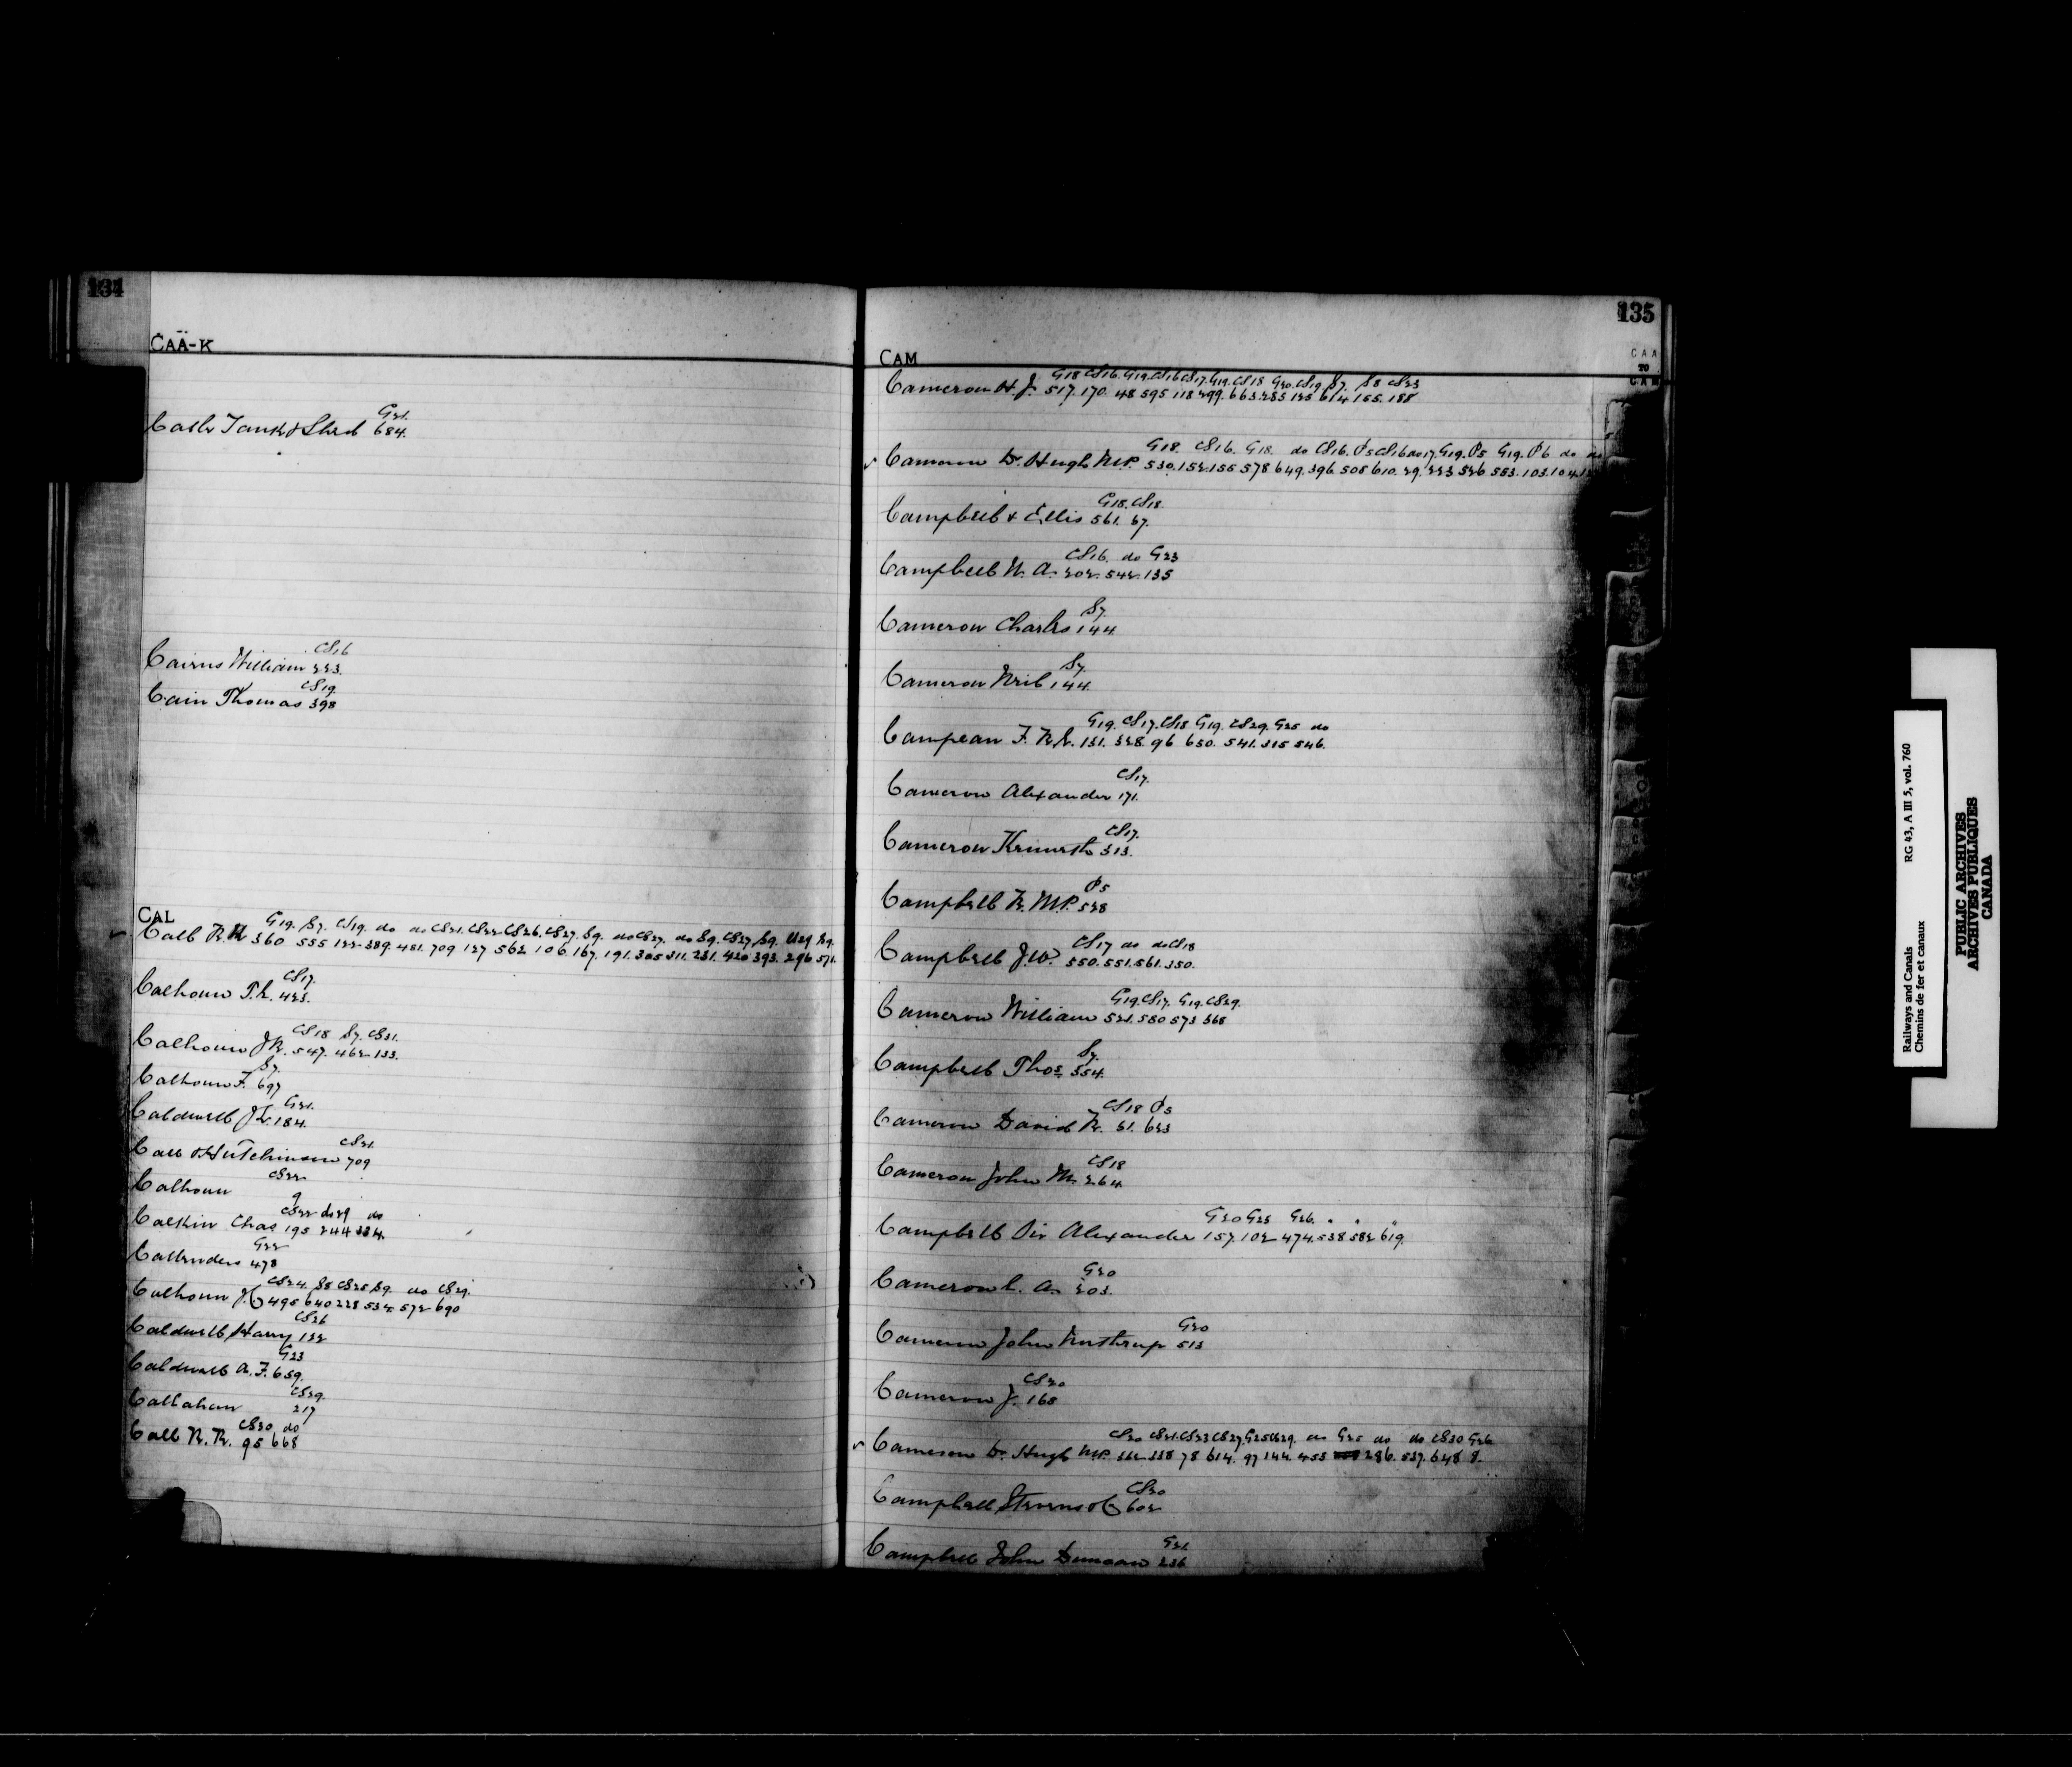 134
CAA-K
G21.
Cable Tank & Shed 684.
CS16
Cairns William 223.
CS19
Cain Thomas 398
CAL
G19. S7. CS19. do do CS21. CS22 CS26. CS27. S9. do CS27. do S9. CS27 S9. CS29 S9.
Call R.R 360 555 122 389. 481. 709 127 562 106. 167. 191. 305 311. 231. 420 393. 296 571.
CS17.
Calhoun T.R. 423.
CS18 S7. CS21.
Calhoun J.R. 547. 462. 133.
S7.
Calhoun F. 697
G21.
Caldwell J 184.
CS21.
Call & Hutchinson 709
CS22
Calhoun 9
CS22 do 29 do
Calkin Chas 195 244 334.
G22
Callenders 478
CS24. S8 CS25 S9. do CS29.
Calhoun J.C 495 640 228 534 572 690
CS26
Caldwell Harry 122
G23
Caldwell A.F. 659.
CS29.
Callahan 217
CS30 do
Call R.R. 95 668
135
CAA
TO
CAM
CAM
G18 CS16. G19. CS16 CS17. G19. CS18 G20. CS19 S7. S8 CS23
Cameron H.J. 517. 170. 48 595 118 299. 663. 285 125 614 155. 188
G18. CS16. G18. do CS16. P5 CS16 do 17. G19. P5 G19. P6 do do
Cameron Dr. Hugh M.P. 530. 152. 155 578 649. 396 508 610. 29. 223 526 553. 103. 104.
G18. CS18.
Campbell & Ellis 561. 67.
CS16. do G23
Campbell W. A. 202. 542. 135
S7.
Cameron Charles 144
S7.
Cameron Neil 144.
G19. CS17. CS18 G19. CS29. G25 do
Campeau F. R. E. 131. 328. 96 650. 541. 315 546.
CS17.
Cameron Alexander 171.
CS17.
Cameron Kenneth 313.
P5
Campbell R. M.P. 528
CS17 do do CS18
Campbell J.W. 550. 551. 561. 350.
G19. CS17. G19. CS29.
Cameron William 521. 580 573 368
S7.
Campbell Thos 554.
CS18 P5
Cameron David R. 51. 623
CS18
Cameron John M. 264
G20 G25 G26. " " "
Campbell Sir Alexander 157. 102 474. 538 582 619.
G20
Cameron C. A. 203.
G20
Cameron John Northrup 513
CS20
Cameron J. 168
CS20 CS21. CS23 CS27. G25 CS29. do G25 do do CS30 G26
Cameron Dr. Hugh M.P. 362 338 78 614. 97 144. 453 286. 537. 648 8.
CS20
Campbell Stevens & Co 602
G21.
Campbell John Duncan 236
Railways and Canals RG 43, A III 5, vol. 760
Chemins de fer et canaux
PUBLIC ARCHIVES
ARCHIVES PUBLIQUES
CANADA